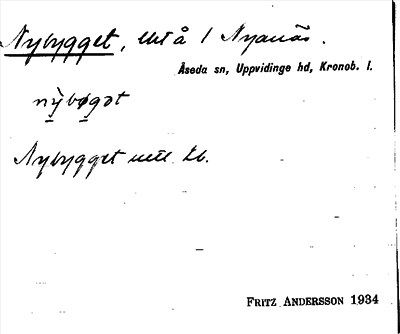 Nybygget, lht å 1 Nyanäs.
Åseda sn, Uppvidinge hd, Kronob. l.
nỳbøgət
Nybygget utt. Lb.
FRITZ ANDERSSON 1934